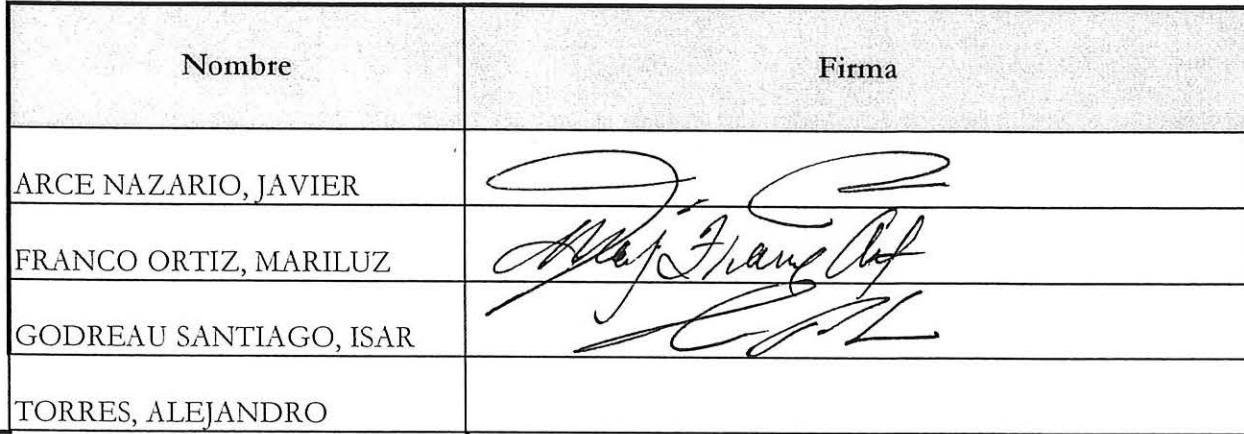 Nombre Firma
ARCE NAZARIO, JAVIER
FRANCO ORTIZ, MARILUZ
GODREAU SANTIAGO, ISAR
TORRES, ALEJANDRO